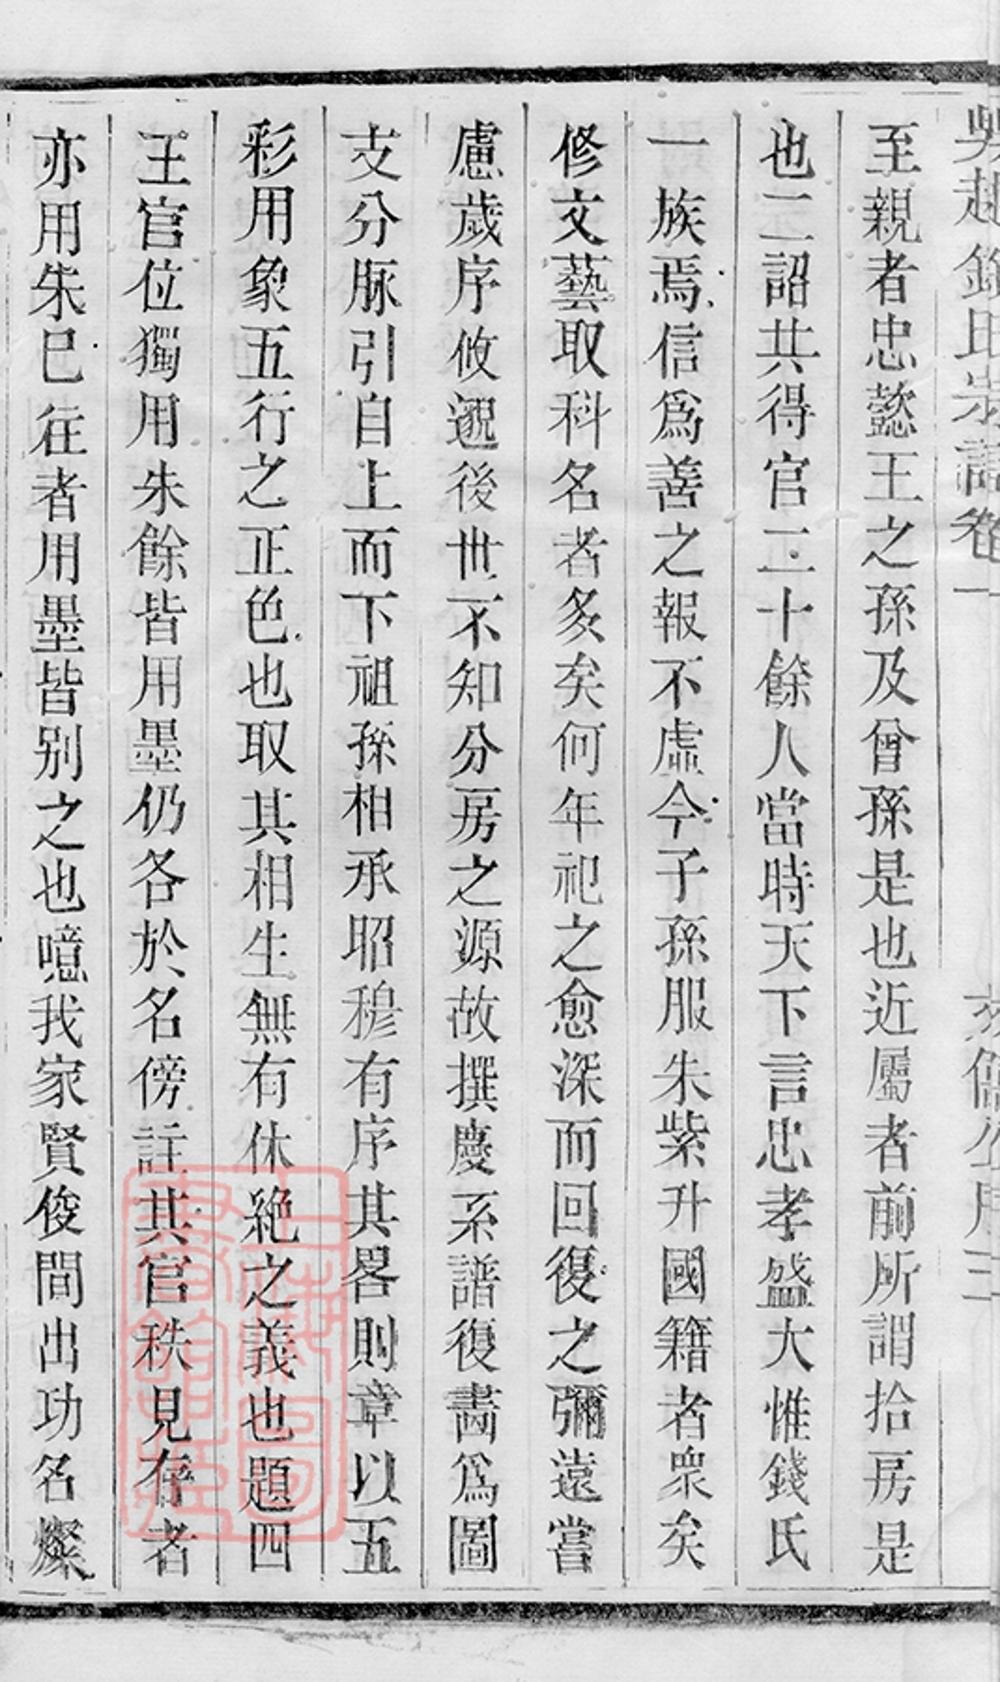 吳越錢氏宗譜卷一
至親者忠懿王之孫及曾孫是也近屬者前所謂拾房是
也二詔共得官二十餘人當時天下言忠孝盛大惟錢氏
一族焉信爲善之報不虛今子孫服朱紫升國籍者衆矣
修文藝取科名者多矣何年祀之愈深而回復之彌遠嘗
慮歲序攸邈後世不知分房之源故撰慶系譜復畵爲圖
支分脉引自上而下祖孫相承昭穆有序其畧則章以五
彩用象五行之正色也取其相生無有休絶之義也題四
王官位獨用朱餘皆用墨仍各於名傍註其官秩見存者
亦用朱巳徃者用墨皆别之也噫我家賢俊間出功名燦
上海圖書館藏